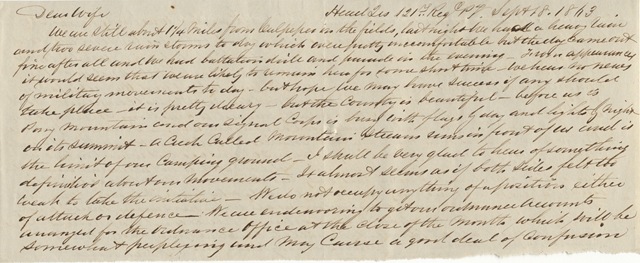 Head Qrs 121st Reg P.V. Sept 18. 1863
Dear Wife
We are still about 1 1/4 miles from Culpeper in the fields, last night we had a heavy rain
and two severe rain storms to day which were pretty uncomfortable but the day came out
fine after all and we had battalion drill and parade in the evening - From appearances
it would seem that we are likely to remain here for some short time - We have no news
of military movements to day - but hope we may have success if any should
take place - it is pretty dreary - but the Country is beautiful - before us is
Pony Mountain and our Signal Corps is busy with flags by day and lights by night
on its summit - a Creek Called Mountain Stream runs in front of us and is
the limit of our Camping ground - I shall be very glad to hear of something
definite about our movements - It almost seems as if both sides felt too
weak to take the initiative - We do not occupy anything of a position either
of attack or defence - We are endeavoring to get our ordnance accounts
arranged for the Ordnance Office at the close of the Month which will be
somewhat perplexing and may cause a good deal of confusion